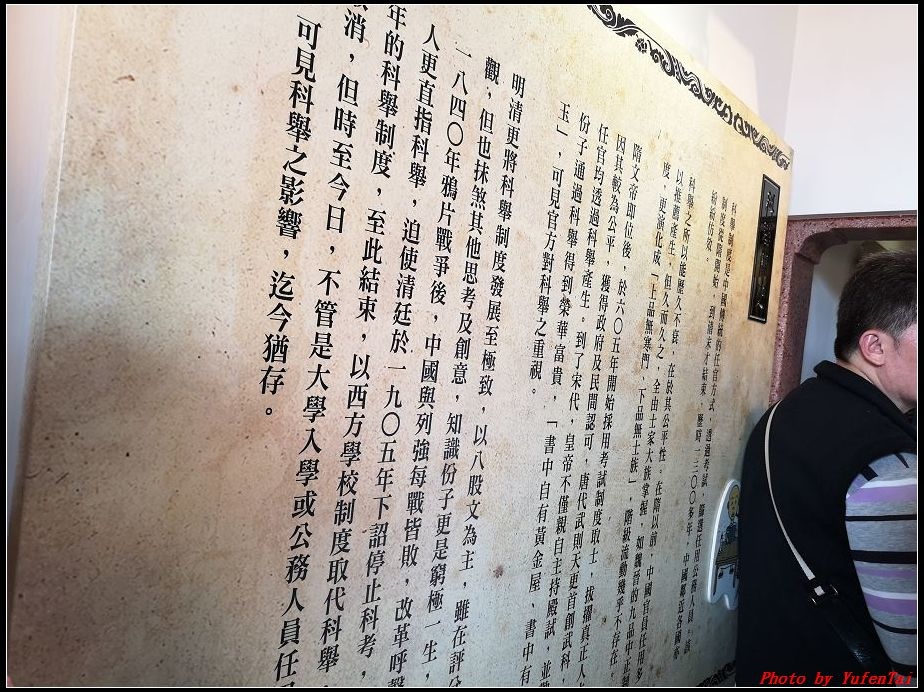 科舉制度是中國傳統的任官方式，透過考試，篩選任用公務人員。該
制度從隋開始，到清末才結束，歷時一三〇〇多年，中國鄰近各國亦
紛紛仿效。
科舉之所以能歷久不衰，在於其公平性。在隋以前，中國官員任用多
以推薦產生，但久而久之，全由士家大族掌握，如魏晉的九品中正
度，更演化成「上品無寒門、下品無士族」，階級流動幾乎不存在。
隋文帝即位後，於六〇五年開始採用考試制度取士，拔擢真正人
因其較為公平，獲得政府及民間認可，唐代武則天更首創武科，
任官均透過科舉產生。到了宋代，皇帝不僅親自主持殿試，並
份子通過科舉得到榮華富貴，「書中自有黃金屋、書中有
玉」，可見官方對科舉之重視。
明清更將科舉制度發展至極致，以八股文為主，雖在評分
觀，但也抹煞其他思考及創意，知識份子更是窮極一生，
一八四〇年鴉片戰爭後，中國與列強每戰皆敗，改革呼聲
人更直指科舉，迫使清廷於一九〇五年下詔停止科考，
年的科舉制度，至此結束，以西方學校制度取代科舉，
消，但時至今日，不管是大學入學或公務人員任
可見科舉之影響，迄今猶存。
Photo by YufenTai